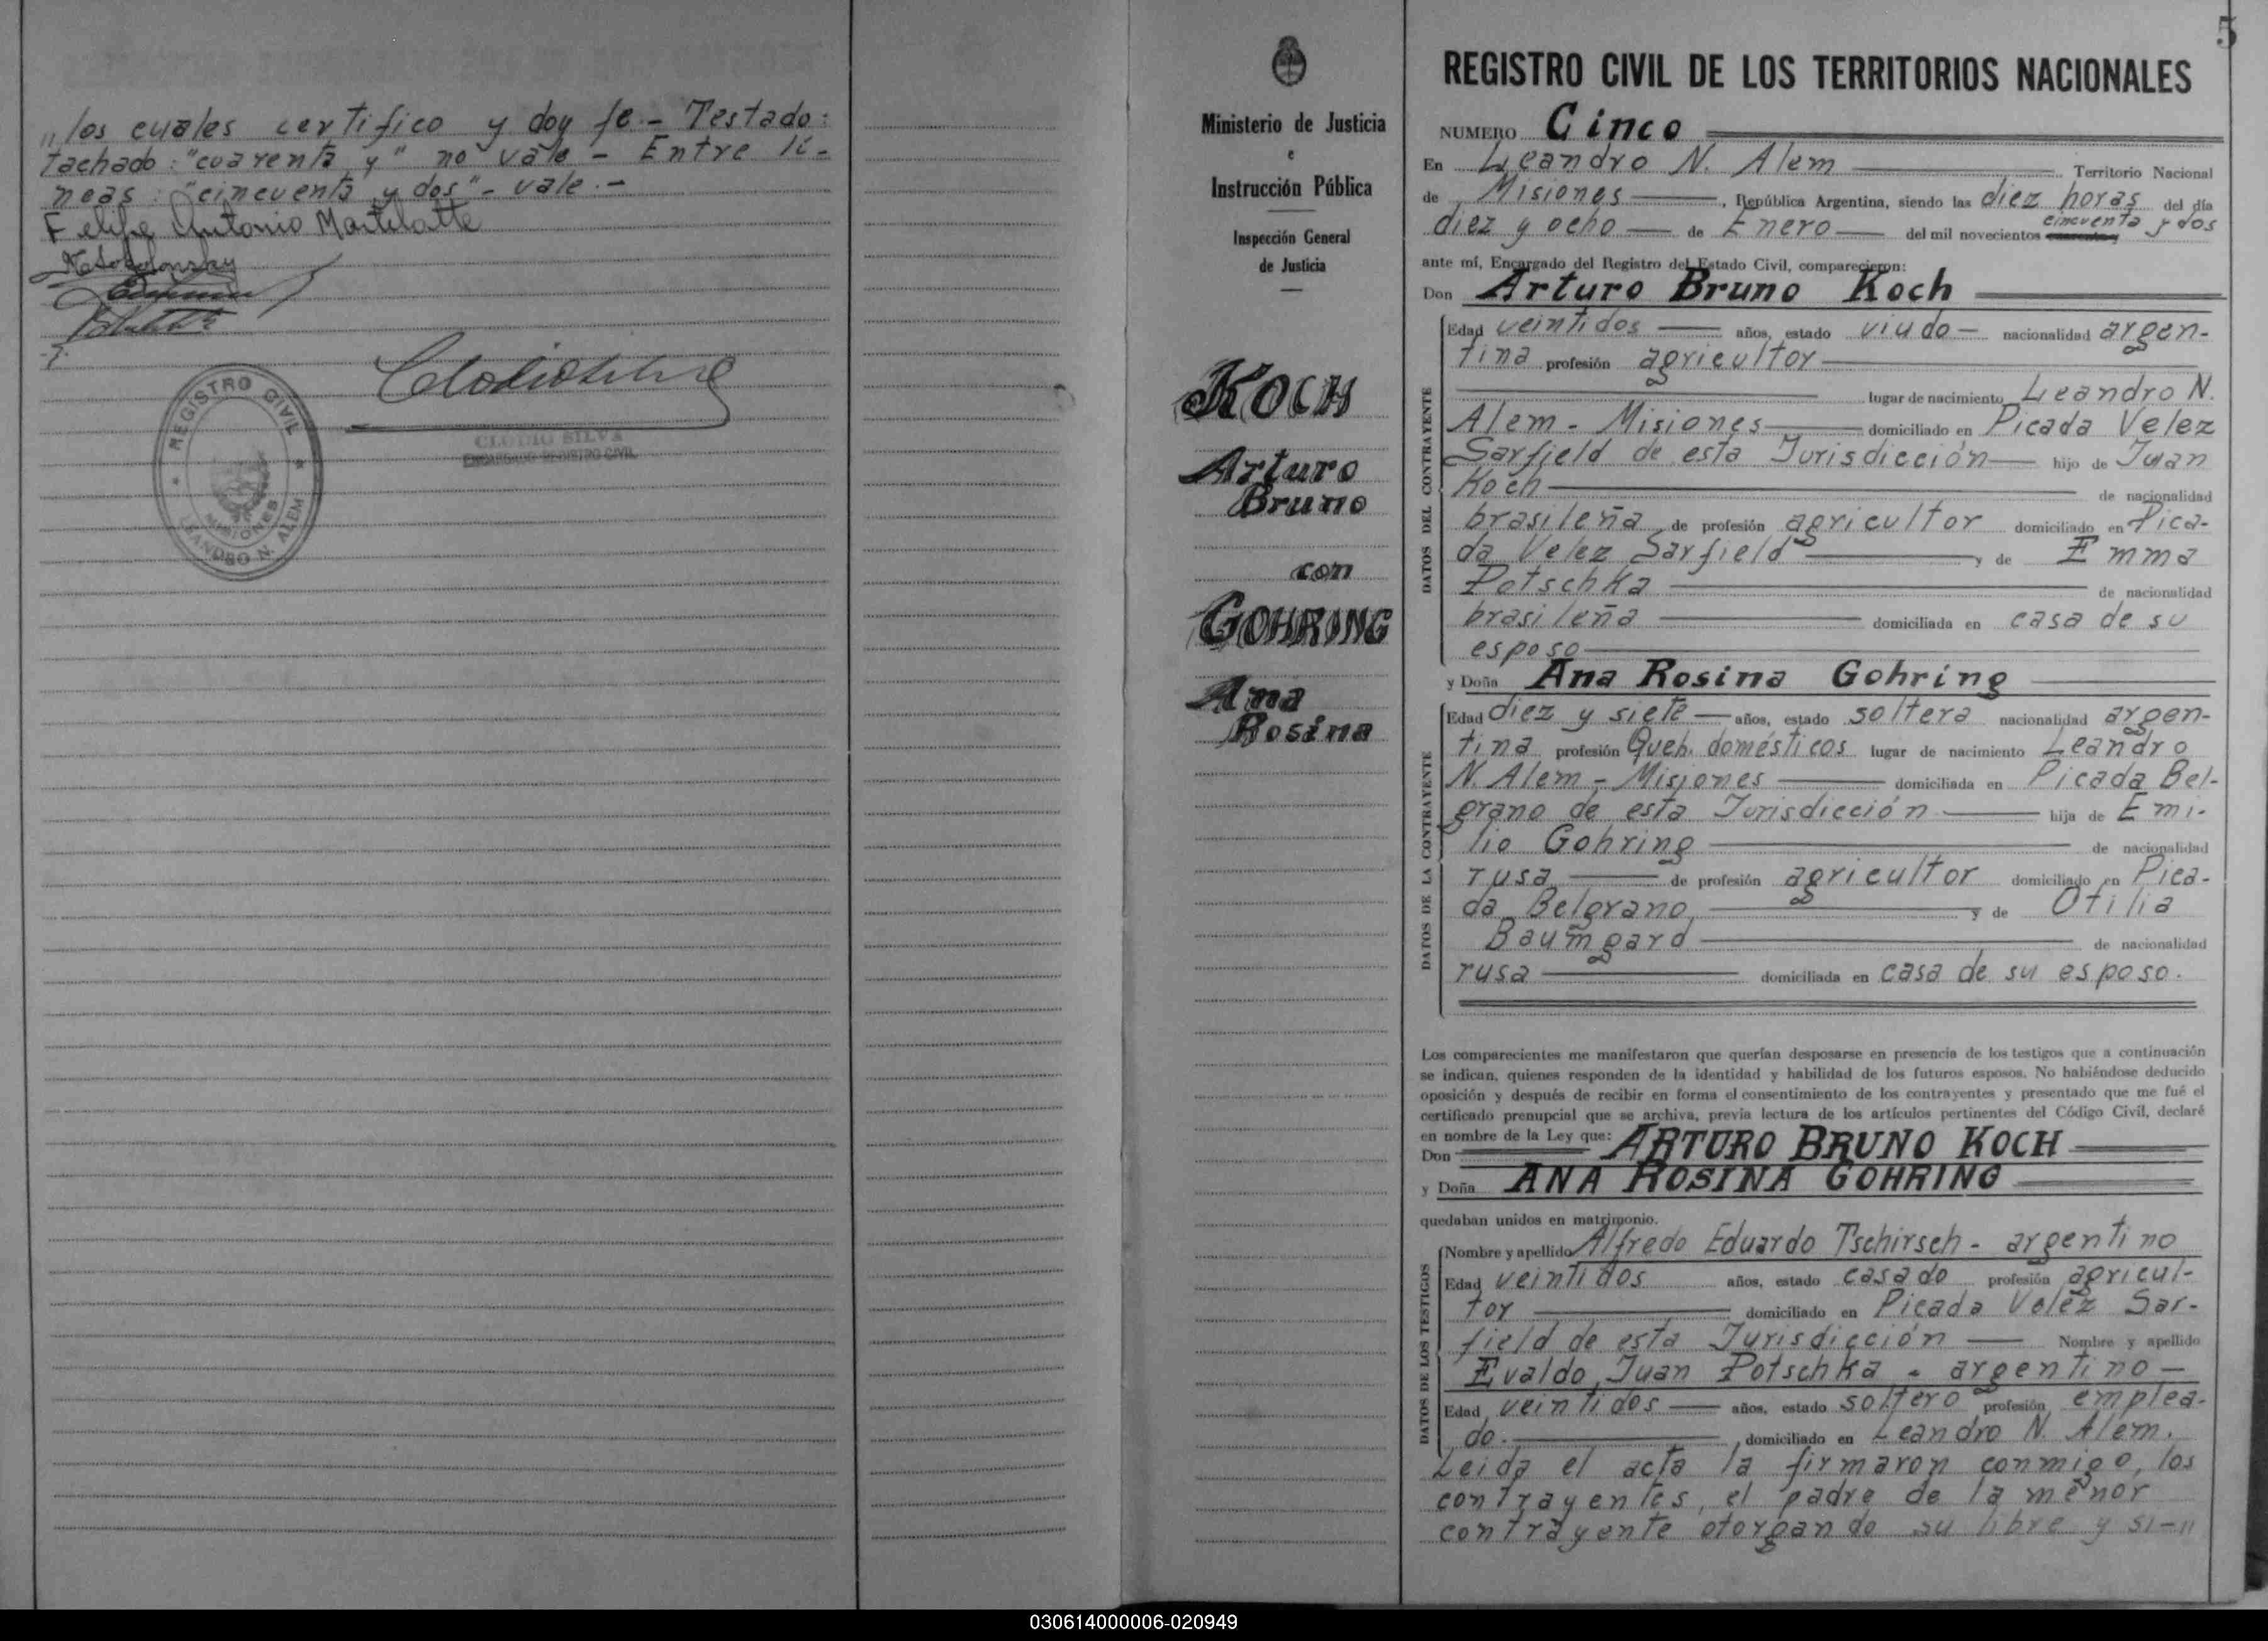 „los cuales certifico y doy fe.- Testado:
tachado: "cuarenta y" no vale - Entre li-
neas: "cincuenta y dos" - vale.-
Felipe Antonio
REGISTRO CIVIL
MISIONES
LEANDRO N. ALEM
CLODIO SILVA
ENCARGADO REGISTRO CIVIL
Ministerio de Justicia
e
Instrucción Pública
Inspección General
de Justicia
KOCH
Arturo
Bruno
con
GOHRING
Ana
Rosina
5
REGISTRO CIVIL DE LOS TERRITORIOS NACIONALES
NUMERO Cinco
En Leandro N. Alem Territorio Nacional
de Misiones, República Argentina, siendo las diez horas del día
diez y ocho de Enero del mil novecientos cincuenta y dos
ante mí, Encargado del Registro del Estado Civil, comparecieron:
Don Arturo Bruno Koch
DATOS DEL CONTRAYENTE
Edad veintidos años, estado viudo nacionalidad argen-
tina profesión agricultor
lugar de nacimiento Leandro N.
Alem - Misiones domiciliado en Picada Velez
Sarfield de esta Jurisdicción hijo de Juan
Koch de nacionalidad
brasileña de profesión agricultor domiciliado en Pica-
da Velez Sarfield y de Emma
Potschka de nacionalidad
brasileña domiciliada en casa de su
esposo
y Doña Ana Rosina Gohring
DATOS DE LA CONTRAYENTE
Edad diez y siete años, estado soltera nacionalidad argen-
tina profesión Queh. domésticos lugar de nacimiento Leandro
N. Alem - Misiones domiciliada en Picada Bel-
grano de esta Jurisdicción hija de Emi-
lio Gohring de nacionalidad
rusa de profesión agricultor domiciliado en Pica-
da Belgrano, y de Otilia
Baumgard de nacionalidad
rusa domiciliada en casa de su esposo.
Los comparecientes me manifestaron que querían desposarse en presencia de los testigos que a continuación
se indican, quienes responden de la identidad y habilidad de los futuros esposos. No habiéndose deducido
oposición y después de recibir en forma el consentimiento de los contrayentes y presentado que me fué el
certificado prenupcial que se archiva, previa lectura de los artículos pertinentes del Código Civil, declaré
en nombre de la Ley que:
Don ARTURO BRUNO KOCH
y Doña ANA ROSINA GOHRING
quedaban unidos en matrimonio.
DATOS DE LOS TESTIGOS
Nombre y apellido Alfredo Eduardo Tschirsch - argentino
Edad veintidos años, estado casado profesión agricul-
tor domiciliado en Picada Velez Sar-
field de esta Jurisdicción Nombre y apellido
Evaldo Juan Potschka - argentino -
Edad veintidos años, estado soltero profesión emplea-
do. domiciliado en Leandro N. Alem.
Leida el acta la firmaron conmigo, los
contrayentes, el padre de la menor
contrayente otorgando su libre y si-„
030614000006-020949